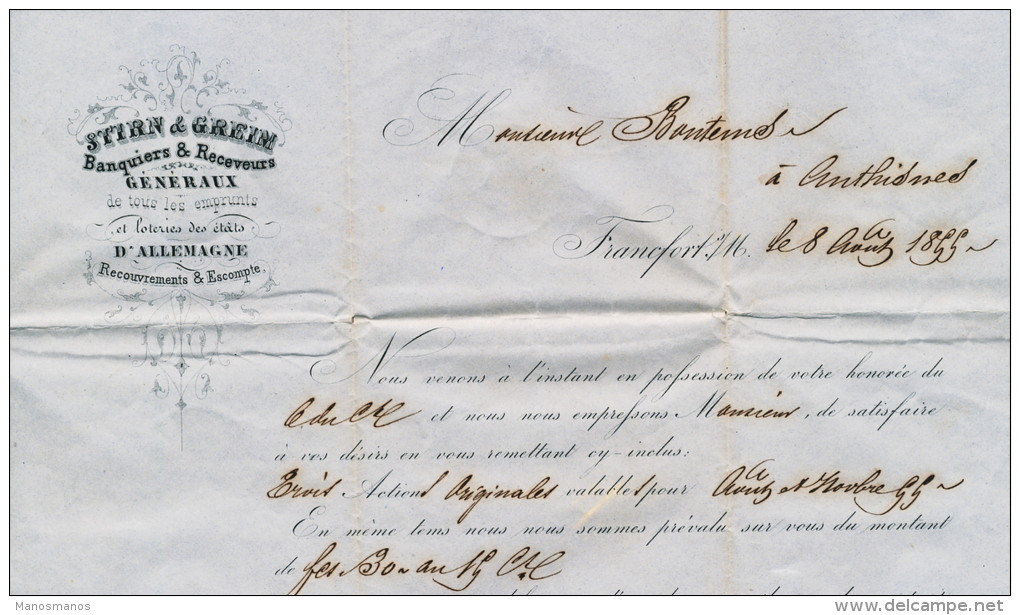 STIRN & GREIM
Banquiers & Receveurs
GÉNÉRAUX
de tous les emprunts
et loteries des états
D'ALLEMAGNE
Recouvrements & Escompte.
Monsieur Bontems
à Anthisnes
Francfort s/M. le 8 Août 1855
Nous venons à l'instant en possession de votre honorée du
6 du Ct et nous nous empressons Monsieur, de satisfaire
à vos désirs en vous remettant cy-inclus:
Trois Actions Originales valables pour Août et Novbre 55
En même tems nous nous sommes prévalu sur vous du montant
de fcs 30 au 15 Ct
Manosmanos
delcampe.net